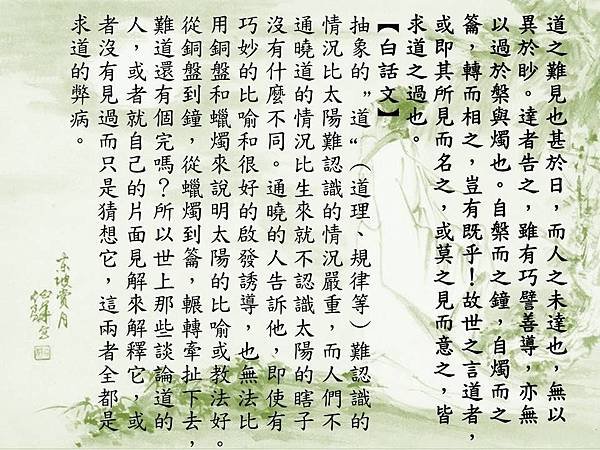 道之難見也甚於日，而人之未達也，無以
異於眇。達者告之，雖有巧譬善導，亦無
以過於槃與燭也。自槃而之鐘，自燭而之
籥，轉而相之，豈有既乎！故世之言道者，
或即其所見而名之，或莫之見而意之，皆
求道之過也。
【白話文】
抽象的”道“（道理、規律等）難認識的
情況比太陽難認識的情況嚴重，而人們不
通曉道的情況比生來就不認識太陽的瞎子
沒有什麼不同。通曉的人告訴他，即使有
巧妙的比喻和很好的啟發誘導，也無法比
用銅盤和蠟燭來說明太陽的比喻或教法好。
從銅盤到鐘，從蠟燭到籥，輾轉牽扯下去，
難道還有個完嗎？所以世上那些談論道的
人，或者就自己的片面見解來解釋它，或
者沒有見過而只是猜想它，這兩者全都是
求道的弊病。
東坡賞月